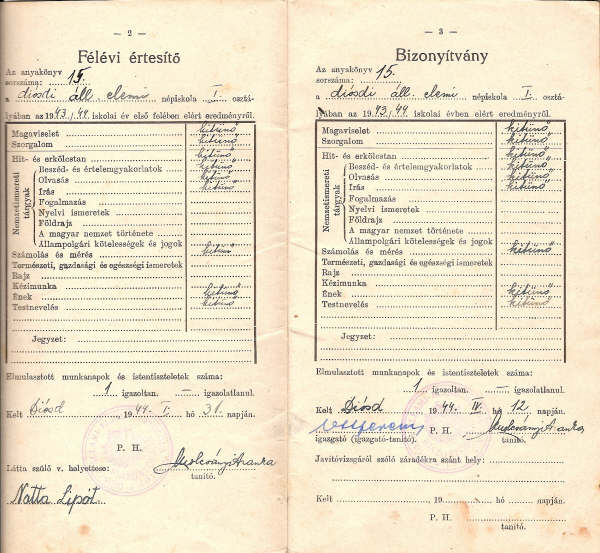 — 2 —
Félévi értesítő
Az anyakönyv
sorszáma: 15.
a diósdi áll. elemi népiskola I. osztá-
lyában az 1943/44 iskolai év első felében elért eredményről.
Magaviselet kitünő
Szorgalom kitünő
Hit- és erkölcstan kitünő
Nemzetismereti tárgyak
Beszéd- és értelemgyakorlatok kitünő
Olvasás kitünő
Írás kitünő
Fogalmazás
Nyelvi ismeretek
Földrajz
A magyar nemzet története
Állampolgári kötelességek és jogok
Számolás és mérés kitünő
Természeti, gazdasági és egészségi ismeretek
Rajz
Kézimunka kitünő
Ének kitünő
Testnevelés
Jegyzet:
Elmulasztott munkanapok és istentiszteletek száma:
1 igazoltan. — igazolatlanul.
Kelt Diósd, 1944. I. hó 31. napján.
P. H.
Látta szülő v. helyettese:
tanító.
Natta Lipót
— 3 —
Bizonyítvány
Az anyakönyv
sorszáma: 15.
a diósdi áll. elemi népiskola I. osztá-
lyában az 1943/44 iskolai évben elért eredményről.
Magaviselet kitünő
Szorgalom kitünő
Hit- és erkölcstan kitünő
Nemzetismereti tárgyak
Beszéd- és értelemgyakorlatok kitünő
Olvasás kitünő
Írás kitünő
Fogalmazás
Nyelvi ismeretek
Földrajz
A magyar nemzet története
Állampolgári kötelességek és jogok
Számolás és mérés kitünő
Természeti, gazdasági és egészségi ismeretek
Rajz
Kézimunka
Ének kitünő
Testnevelés kitünő
Jegyzet:
Elmulasztott munkanapok és istentiszteletek száma:
1 igazoltan. — igazolatlanul.
Kelt Diósd 1944 IV. hó 12 napján.
igazgató (igazgató-tanító). P. H. tanító.
Javítóvizsgáról szóló záradékra szánt hely:
Kelt , 19 hó napján.
P. H.
tanító.